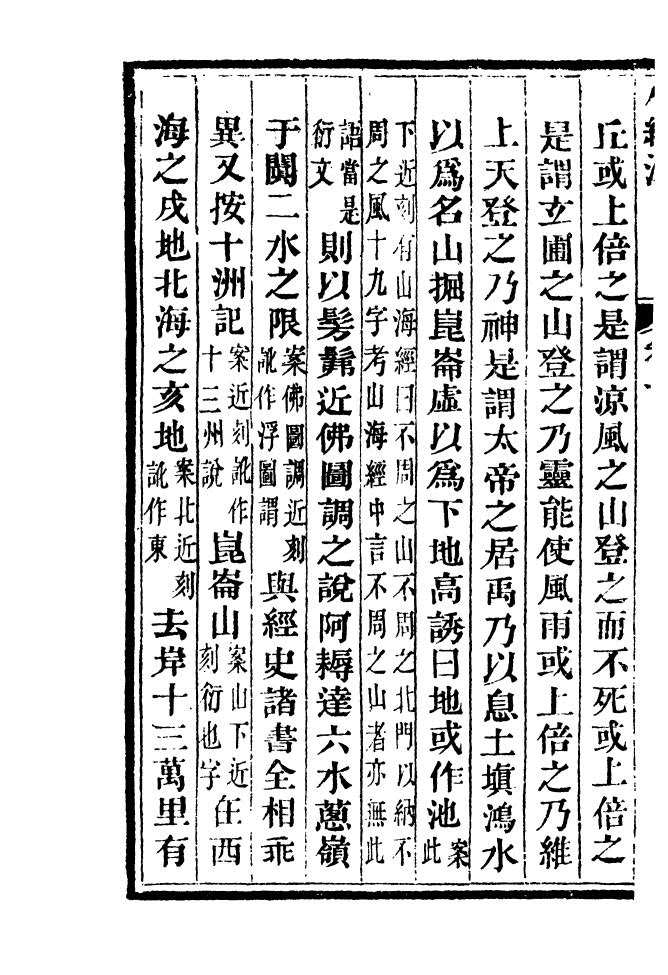 丘或上倍之是謂涼風之山登之而不死或上倍之
是謂玄圃之山登之乃靈能使風雨或上倍之乃維
上天登之乃神是謂太帝之居禹乃以息土塡鴻水
以爲名山掘崑崙虛以爲下地高誘曰地或作池案此
下近刻有山海經曰不周之山不周之北門以納不
周之風十九字考山海經中言不周之山者亦無此
語當是衍文則以髣髴近佛圖調之說阿耨達六水蔥嶺
于闐二水之限案佛圖調近刻訛作浮圖謂與經史諸書全相乖
異又按十洲記案近刻訛作十三州說崑崙山案山下近刻衍也字在西
海之戌地北海之亥地案北近刻訛作東去岸十三萬里有